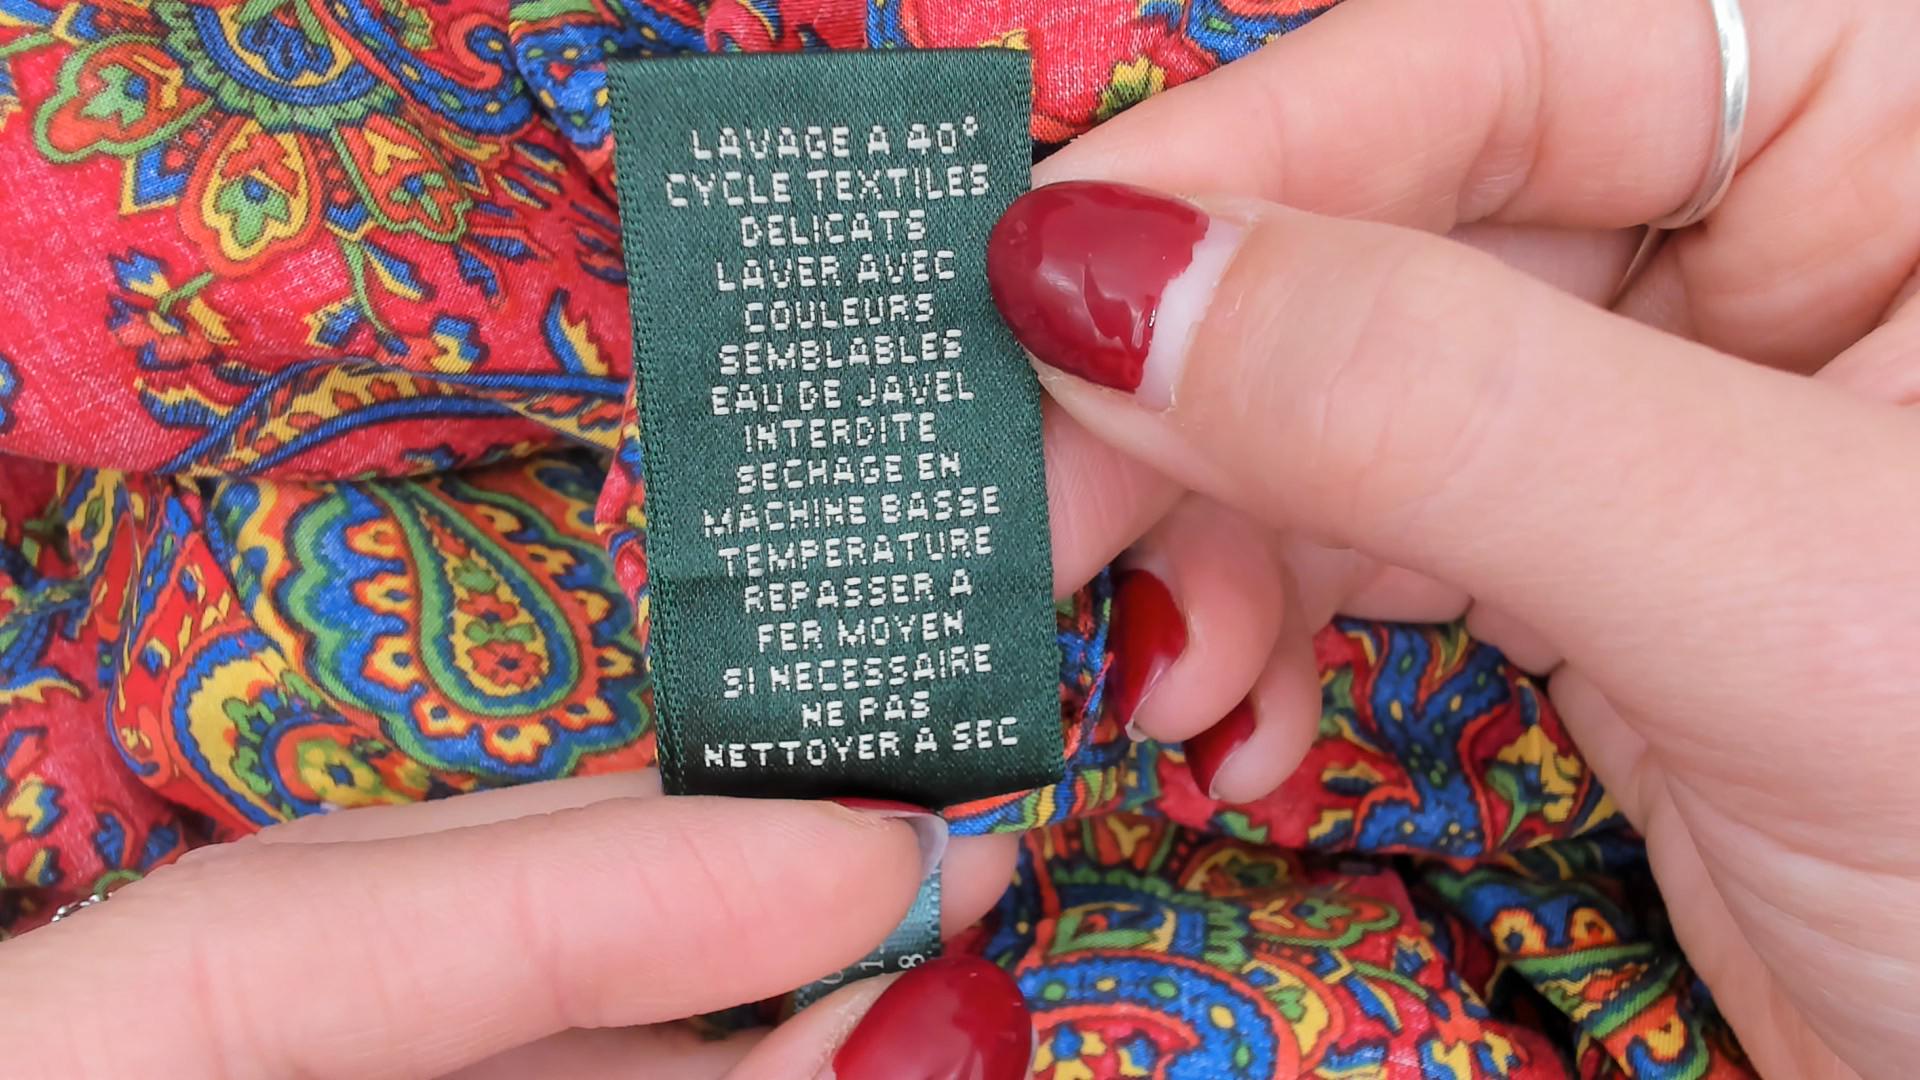 LAVAGE A 40°
CYCLE TEXTILES
DELICATS
LAVER AVEC
COULEURS
SEMBLABLES
EAU DE JAVEL
INTERDITE
SECHAGE EN
MACHINE BASSE
TEMPERATURE
REPASSER A
FER MOYEN
SI NECESSAIRE
NE PAS
NETTOYER A SEC